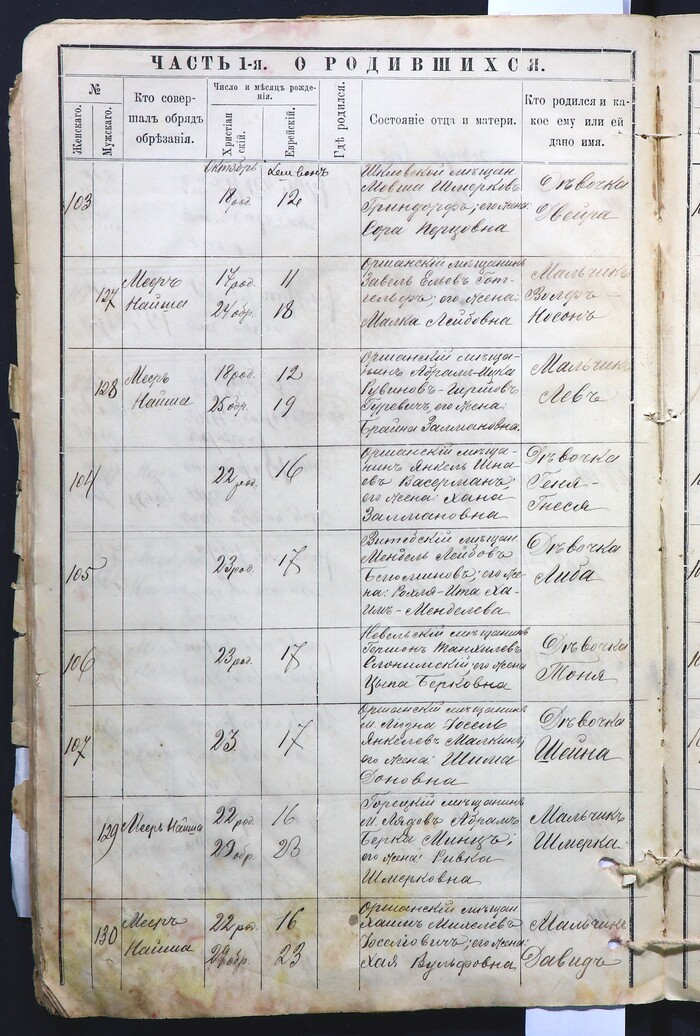 ЧАСТЬ 1-я. О РОДИВШИХСЯ.
№
Женскаго.
Мужскаго.
Кто совер-
шалъ обрядъ
обрѣзанія.
Число и мѣсяцъ рожде-
нія.
Христіан
скій.
Еврейскій.
Гдѣ родился.
Состояніе отца и матери.
Кто родился и ка-
кое ему или ей
дано имя.
Октябрь
103
18 род.
12
Шкловской мѣщан
Мовша Шмерковъ
Гриндорфъ; его жена
Сора Перцовна
Дѣвочка
Двейра
127
Мееръ
Найша
17 род.
24 обр.
11
18
Оршанскій мѣщанинъ
Завель Ельевъ Гот-
гельфъ; его жена:
Малка Лейбовна
Мальчикъ
Вольфъ-
Носонъ
128
Мееръ
Найша
18 род.
25 обр.
12
19
Оршанскій мѣща-
нинъ Абрамъ-Ицка
Рувиновъ-Гиршовъ
Гуревичъ, его жена:
Брайна Залмановна.
Мальчикъ
Левъ
104
22 род.
16
Оршанскій мѣща-
нинъ Янкель
евъ Васерманъ;
его жена: Хана
Залмановна
Дѣвочка
Геня-
Гнеся
105
23 род.
17
Витебскій мѣщан
Мендель Лейбовъ
его же-
на: Рохля-Ита Ха-
имъ-Менделева
Дѣвочка
Либа
106
23 род.
17
Невельскій мѣщанинъ
Гершонъ Танхилевъ
Слонимскій; его жена
Цыпа Берковна
Дѣвочка
Тоня
107
23
17
Оршанскій мѣщанинъ
м. Лiозна Іосель
Янкелевъ Малкинъ,
его жена: Шима
Доновна
Дѣвочка
Шейна
129
Мееръ Найша
22 род.
29 обр.
16
23
Горецкій мѣщанинъ
м. Лядовъ Абрамъ
Берка Минцъ;
его жена: Ривка
Шмерковна
Мальчикъ
Шмерка
130
Мееръ
Найша
22 род.
29 обр.
16
23
Оршанскій мѣщан
Хаимъ
его жена:
Хая Вульфовна
Мальчикъ
Давидъ